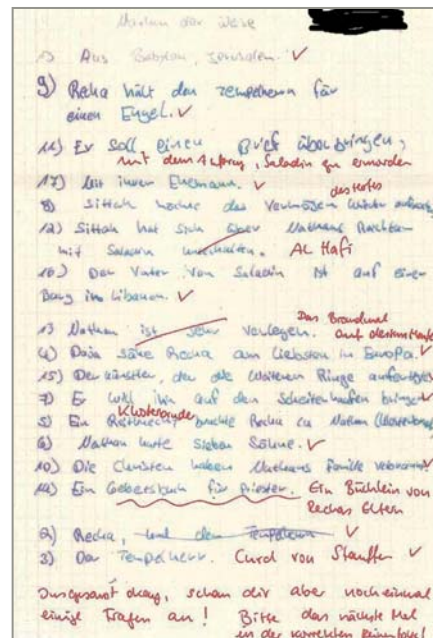 Nathan der Weise
1) Aus Babylon, Jerusalem. ✓
9) Recha hält den Tempelherrn für
einen Engel. ✓
11) Er soll einen Brief überbringen,
mit dem Auftrag, Saladin zu ermorden
17) Mit ihrem Ehemann. ✓
des Hofes
8) Sittah das Vermögen
12) Sittah hat sich über Nathans Reichtum
mit Saladin unterhalten. Al Hafi
16) Der Vater von Saladin ist auf einer
Burg im Libanon. ✓
Das Brandmal
13 Nathan ist sehr verlegen. auf dem
4) Daja sähe Recha am liebsten in Europa. ✓
15) Der Künstler, der die weiteren Ringe
7) Er will ihn auf den Scheiterhaufen bringen ✓
Klosterbruder
5) Ein Reitknecht brachte Recha zu Nathan
6) Nathan hatte sieben Söhne. ✓
10) Die Christen haben Nathans Familie verbrannt. ✓
14) Ein Gebetsbuch für Priester. Ein Büchlein von
Rechas Eltern
2) Recha, und den Tempelherrn ✓
3) Der Tempelherr. Curd von Stauffen ✓
Insgesamt okay, schau dir aber noch einmal
einige Fragen an! Bitte das nächste Mal
in der korrekten Reihenfolge!